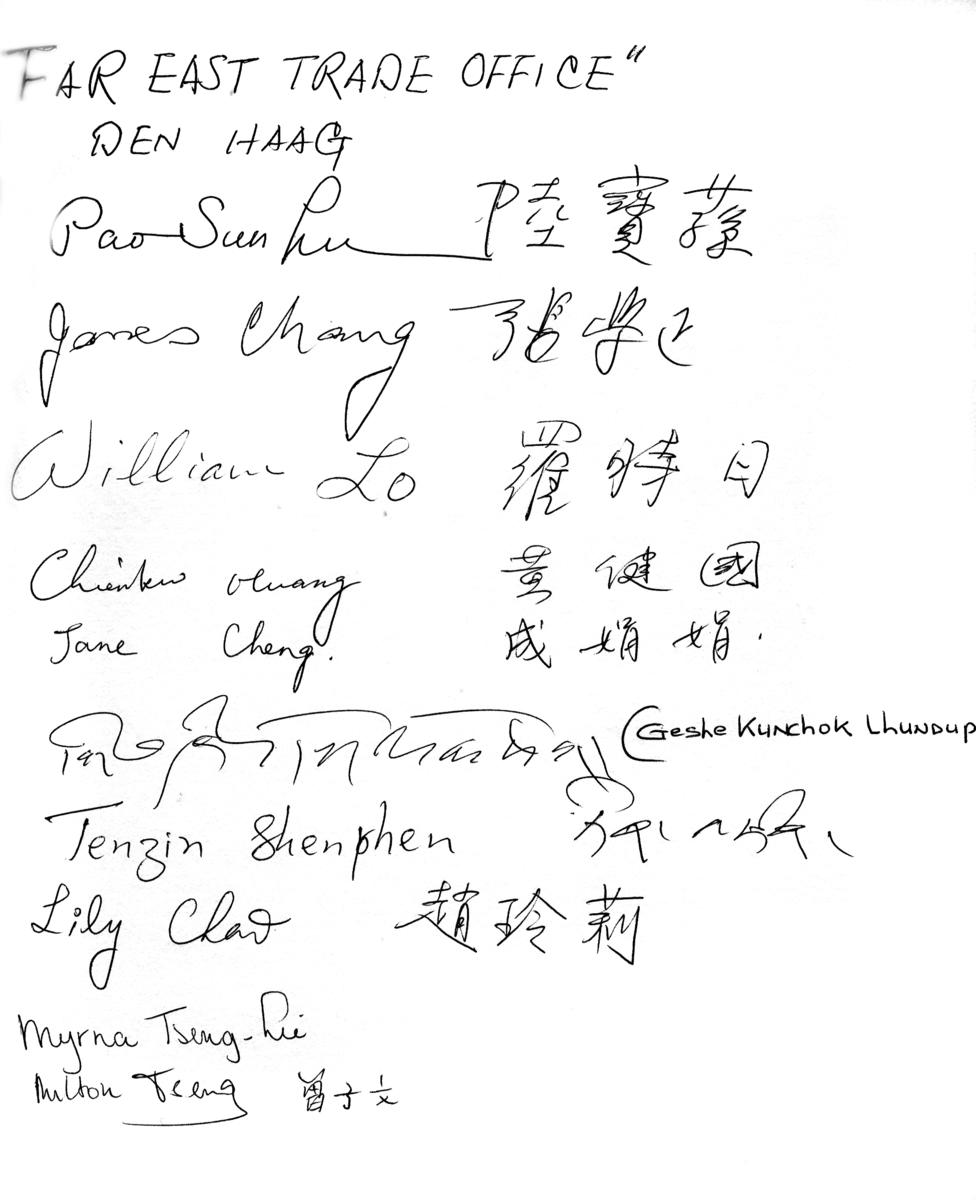 FAR EAST TRADE OFFICE"
DEN HAAG
Pao Sun Lu 陸寶蓀
James Chang 張學
William Lo 羅時
Chienkuo Huang 黃健國
Jane Cheng. 成娟娟.
(Geshe Kunchok Lhundup
Tenzin Shenphen
Lily Chao 趙玲莉
Myrna Tseng-Lui
Milton Tseng 曾子文